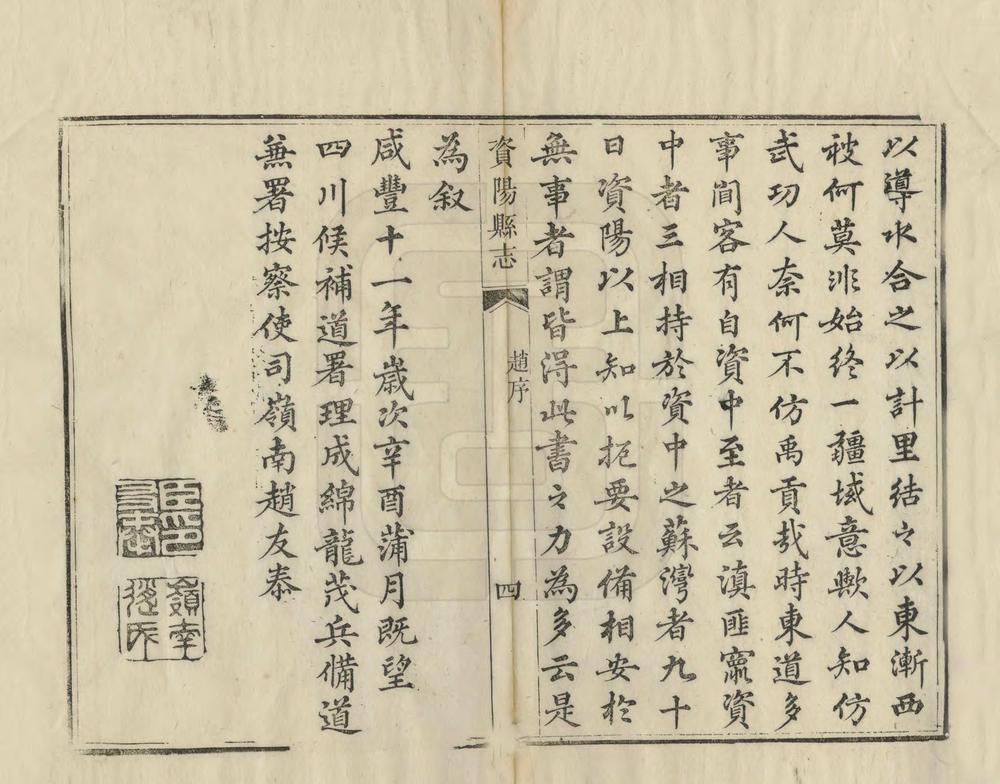 以導水合之以計里結之以東漸西
被何莫非始終一疆域意歟人知仿
武功人奈何不仿禹貢哉時東道多
事間客有自資中至者云滇匪竄資
中者三相持於資中之蘇灣者九十
日資陽以上知以扼要設備相安於
無事者謂皆得此書之力為多云是
資陽縣志
趙序
四
為叙
咸豐十一年歲次辛酉蒲月既望
四川候補道署理成綿龍茂兵備道
兼署按察使司嶺南趙友泰